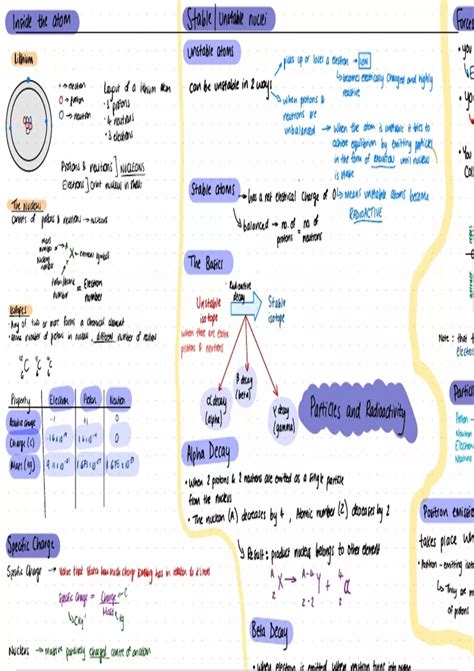 Inside the atom
Lithium
→ electron
→ proton
→ neutron
Layout of a lithium atom
· 3 protons
· 4 neutrons
· 3 electrons
Protons & neutrons ] NUCLEONS
Electrons ] orbit nucleus in shells
The Nucleus
Consists of protons & neutrons → nucleons
A
X → element symbol
Z
= Electron
number
Isotopes
· Any of two or more forms a chemical element
· same number of protons in nucleus, different number of
Property
Electron
Proton
Neutron
Relative charge
-1
+1
0
Charge (C)
0
Mass (kg)
Specific Charge
Specific Charge →
Specific Charge = Charge → C
Mass → kg
Ckg⁻¹
Nucleus → massive positively charged centre of an atom
Stable / Unstable nuclei
Unstable atoms
can be unstable in 2 ways
→ picks up or loses a electron → ION
→ becomes electrically charged and highly
reactive
→ when protons &
neutrons are
unbalanced
→ When the atom is unstable it tries to
achieve equilibrium by emitting particles
in the form of radiation until nucleus
is stable
Stable atoms
→ has a net electrical charge of 0
→ means unstable atoms become
RADIOACTIVE
→ balanced → no. of = no. of
protons neutrons
The Basics
Radioactive
decay
Unstable
isotope
Stable
isotope
when there are extra
protons & neutrons
α decay
(alpha)
β decay
(beta)
γ decay
(gamma)
Particles and Radioactivity
Alpha Decay
· When 2 protons & 2 neutrons are emitted as a single particle
from the nucleus
· The nucleon (A) decreases by 4, Atomic number (Z) decreases by 2
→ Result: product nucleus belongs to other element
A X → A-4 Y + 4 α
Z Z-2 2
Beta Decay
· When electron is emitted when neutron turns into
Forces
· You
· You
Note: that t
Electron
Particle
Proton -
Neutron -
Electron
Neutrino
Positron emission
takes place wh
· Positron-emitting isoto
→ They are m
of protons